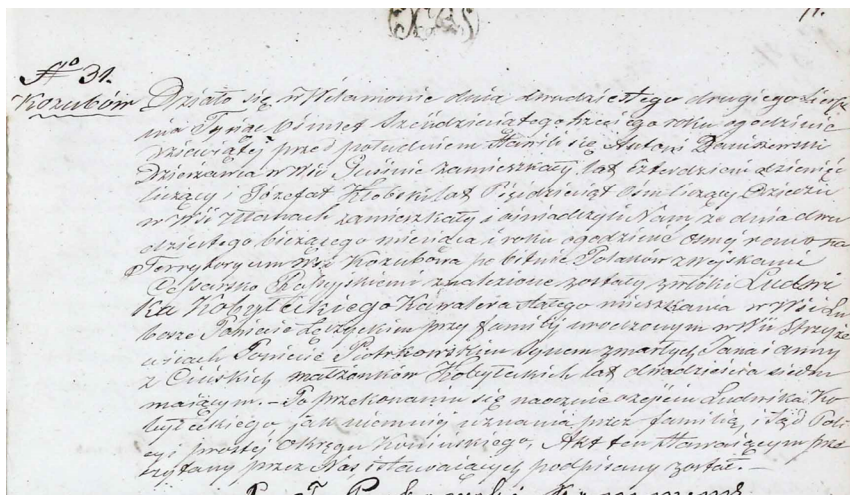 No 31.
Kozubów
Działo się w Wilamowie dnia dwudziestego drugiego Sierp
nia Tysiąc Ośmset Sześćdziesiątego trzeciego roku o godzinie
dziewiątej przed południem Stawili się Antoni Daniszewski
Dzierżawca w Wsi zamieszkały lat czterdzieści dziewięć
liczący i Józefat Kłobski lat Pięćdziesiąt ośm liczący Dziedzic
w Wsi zamieszkały i oświadczyli Nam, że dnia dwu
dziestego bieżącego miesiąca i roku o godzinie ósmej rano na
Terrytoryum Wsi Kozubowa po bitwie Polaków z wojskami
Cesarsko Rossyjskiemi znalezione zostały zwłoki Ludwi
ka Kobyłeckiego Kawalera stałego mieszkania w Wsi Lu
borze Powiecie Łęczyckim przy familij urodzonym w Wsi Strzyże
wicach Powiecie Piotrkowskim Synem zmarłych Jana i Anny
z małżonków Kobyłeckich lat dwadzieścia siedm
mającym. – Po przekonaniu się naocznie o zejściu Ludwika Ko
byłeckiego, jak niemniej uznania przez familię, i Sąd Poli
cyi prostej Okręgu Konińskiego, Akt ten stawającym prze
czytany przez Nas i stawających podpisany został. –